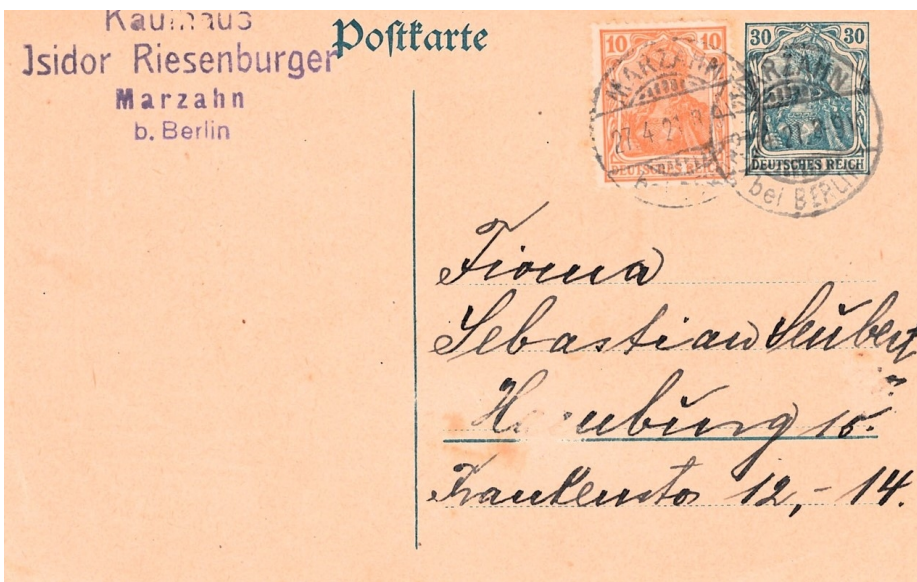 Kaufhaus
Isidor Riesenburger
Marzahn
b. Berlin
Postkarte
10 10
DEUTSCHES REICH
30 30
DEUTSCHES REICH
MARZAHN
27.4.21.
MARZAHN
bei BERLIN
Firma
Sebastian
Hamburg 15.
12,- 14.